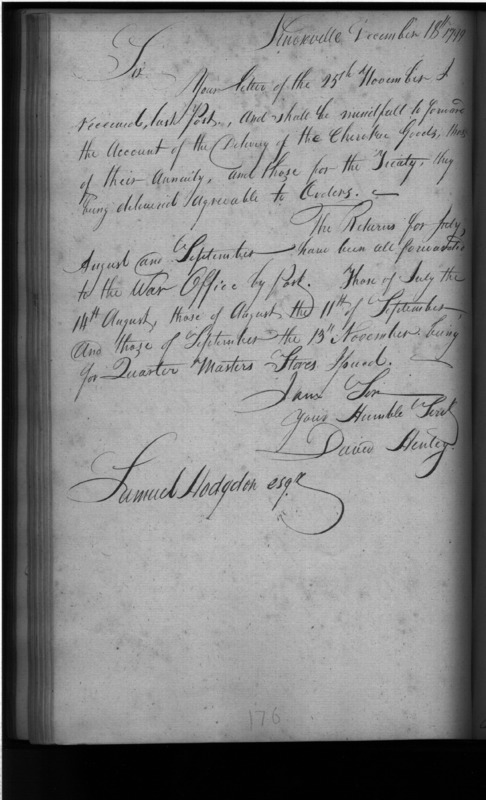 Knoxville December 18th 1799
Sir
Your letter of the 25th November I
received, last Post, And shall be mindfull to forward
the Account of the Delivery of the Cherokee Goods, those
of their Annuity, and those for the Treaty, they
being delivered Agreeable to Orders.
The Returns for July,
August and September have been all forwarded
to the War Office by Post. Those of July the
14th August, those of August, the 11th of September,
And those of September the 13th November being
for Quarter Masters Stores Issued.
I am Sir
Your Humble Servt
David Henley.
Samuel Hodgdon esqr
176